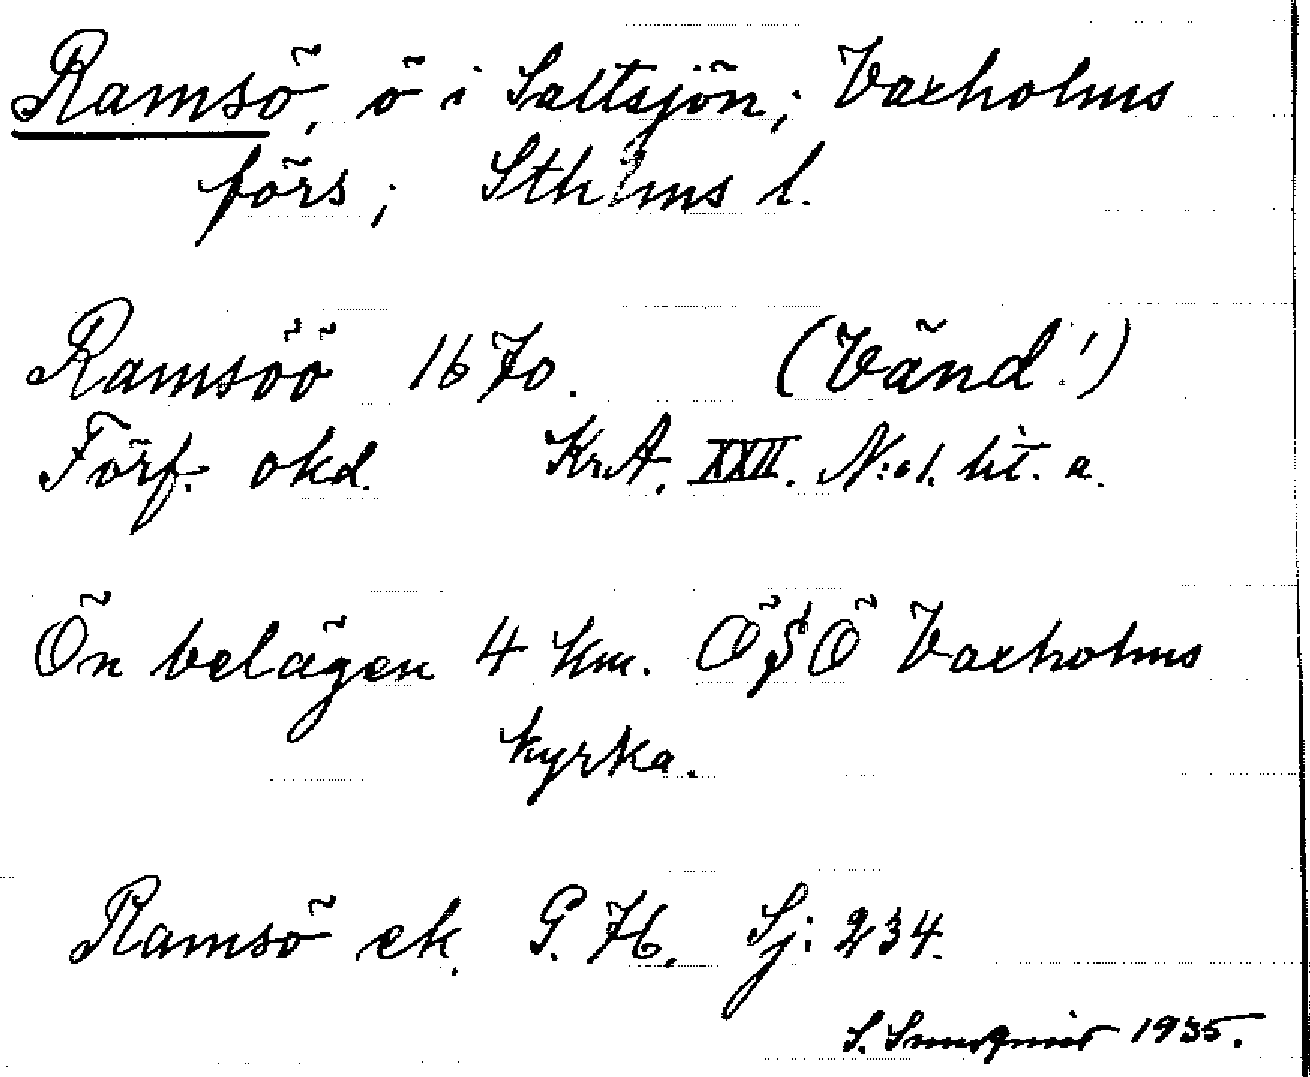 Ramsö, ö i Saltsjön; Vaxholms
förs; Sthlms l.
Ramsöö 1670. (Vänd!)
Förf. okd. Kr.A. XXII. N:o 1. lit. a.
Ön belägen 4 km. ÖSÖ Vaxholms
kyrka.
Ramsö ek. G. 76. Sj: 234.
S. 1935.